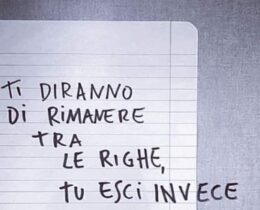 TI DIRANNO
DI RIMANERE
TRA
LE RIGHE,
TU ESCI INVECE